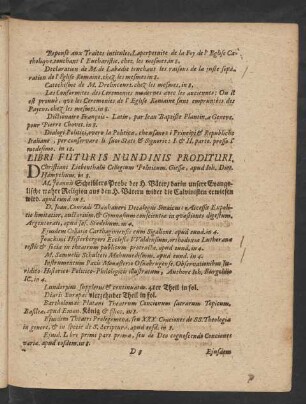 Reponse aux Traitez intitulez, La perpetuité de la Foy de l' Eglise Ca-
tholique, touchant l' Eucharistie, chez les mesmes, in 8.
Declaration de M. de Labadie touchant les raisons de la juste sepa-
ration de l' Eglise Romaine, chez les mesmes, in 8.
Catechisme de M. Drelincourt, chez les mesmes, in 8.
Les Conformitez des Ceremonies modernes avec les anciennes: Ou il
est prouvé, que les Ceremonies de l' Eglise Romaine sont empruntées des
Payens, chez les mesmes in 8.
Dictionaire François-Latin, par Jean Baptiste a Geneve,
pour Pierre Chouet. in 8.
Dialogi Politici, overo la Politica, che usano i Principi, & Republiche
Italiani, per conservare il suo Stato & Signorie; I. & II. parte. presso l'
medesimo, in 12.
LIBRI FUTURIS NUNDINIS PRODITURI,
Christiani Liebenthalii Collegium Politicum. Giessæ, apud Joh. Diet.
Hampelium. in 8.
M. Jacob Scheiblers Probe der P. Váter, darin unser Evange-
lische wahre Religion aus den P. Vätern wider die Calvinisten erwiesen
wird. apud eund. in 8.
D. Joan. Conradi Dannhaueri Decalogus Sinaicus: Accessit Expli-
tio in quæstiones digestum,
Argentorati, apud Jos. Stedelium. in 4.
Ejusdem Collatio Carthaginensis cum Sigalione. apud eund. in 4.
Joachimi Histerbergers Ecclesia VValdensium, orthodoxiæ Lutheranæ
testis & socia, in Universitate publicum passura examen. apud eund. in 4.
M. Samuelis Schultes Micrometria. apud eund. in 8.
Instrumentum Pacis Monasterio-Osnabrugensis, Observationibus Juri-
dico-Historico-Politico-Philologicis illustratum, Auctore Joh.
I.C. in 4.
Lundorpius suppletus & continuatus. 4ter Theil in fol.
Diarii Europæi vierzehender Theil in 4.
Bartholomæi Platani Theatrum Concionum sacrarum Topicum,
Basileæ, apud Emau. König & filios, in 4.
Ejusdem Theatri Prolegomena, seu XXX. Conciones de SS. Theologia
in genere, & in specie de S. Scriptura. apud eosd. in 8.
Ejusd. Libri primi pars prima, seu de Deo cognoscendo Conciones
variæ. apud eosdem, in 8.
D 3 Ejusdem